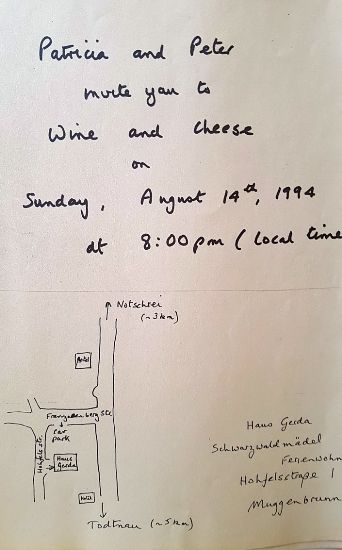 Patricia and Peter
invite you to
Wine and Cheese
on
Sunday, August 14th, 1994
at 8:00pm (local time
Notschrei
(~3km)
Hotel
Str.
car
park
Hohfelsstr.
Haus
Gerda
Haus Gerda
Schwarzwaldmädel
Ferienwohn
Hohfelsstraße 1
Muggenbrunn
Todtnau (~5km)